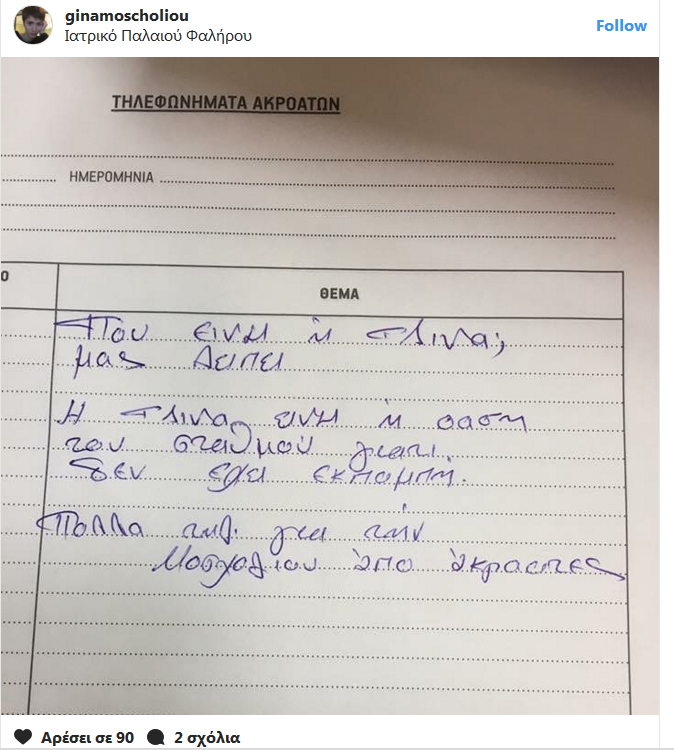 ginamoscholiou
Ιατρικό Παλαιού Φαλήρου
Follow
ΤΗΛΕΦΩΝΗΜΑΤΑ ΑΚΡΟΑΤΩΝ
ΗΜΕΡΟΜΗΝΙΑ
Ο
ΘΕΜΑ
Που ειναι η Τζινα;
μας λειπει
Η Τζινα ειναι η φαση
του σταθμού γιατι
δεν εχει εκπομπη.
Πολλα τηλ. για την
Μοσχολιου απο ακροατες
Αρέσει σε 90
2 σχόλια